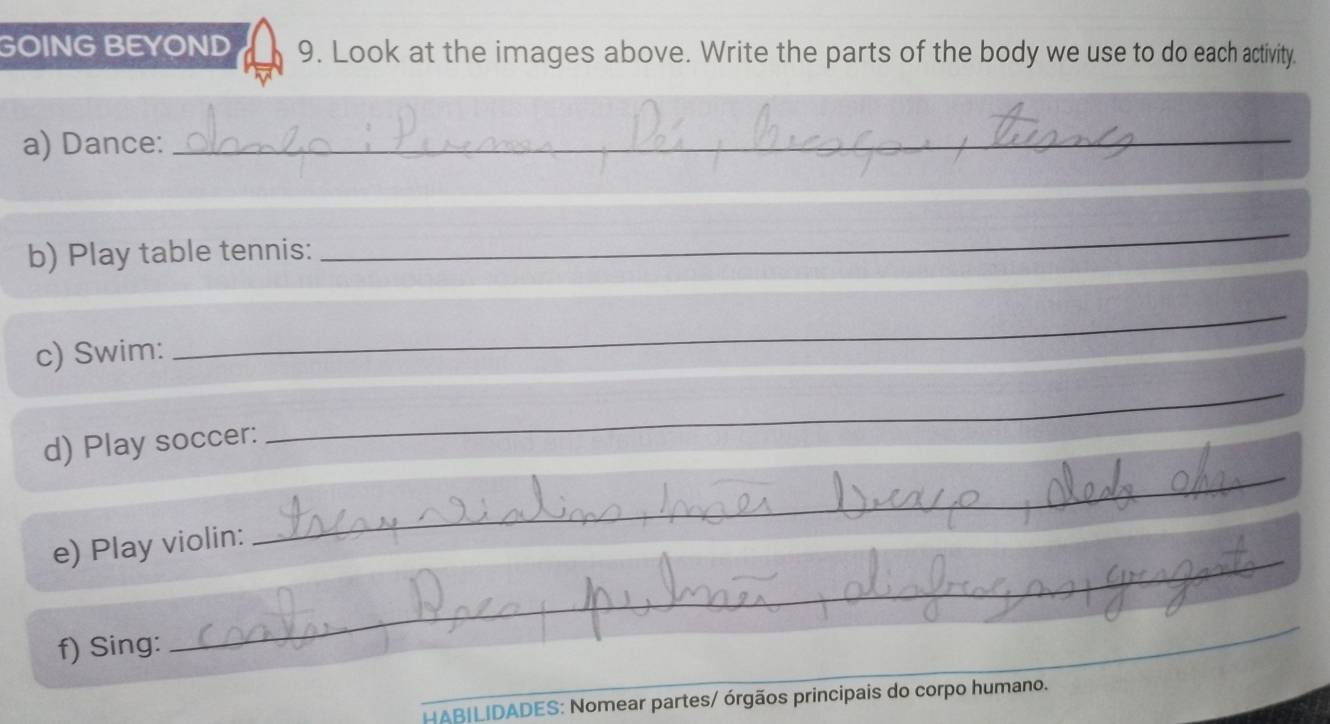 GOING BEYOND 9. Look at the images above. Write the parts of the body we use to do each activity.
a) Dance: dança: Pernas, Pés, braços, tronco
b) Play table tennis:
c) Swim:
d) Play soccer:
e) Play violin: violino, mães braço, dedo
f) Sing: cantar, Boca, pulmão, diafragma, garganta
HABILIDADES: Nomear partes/ órgãos principais do corpo humano.